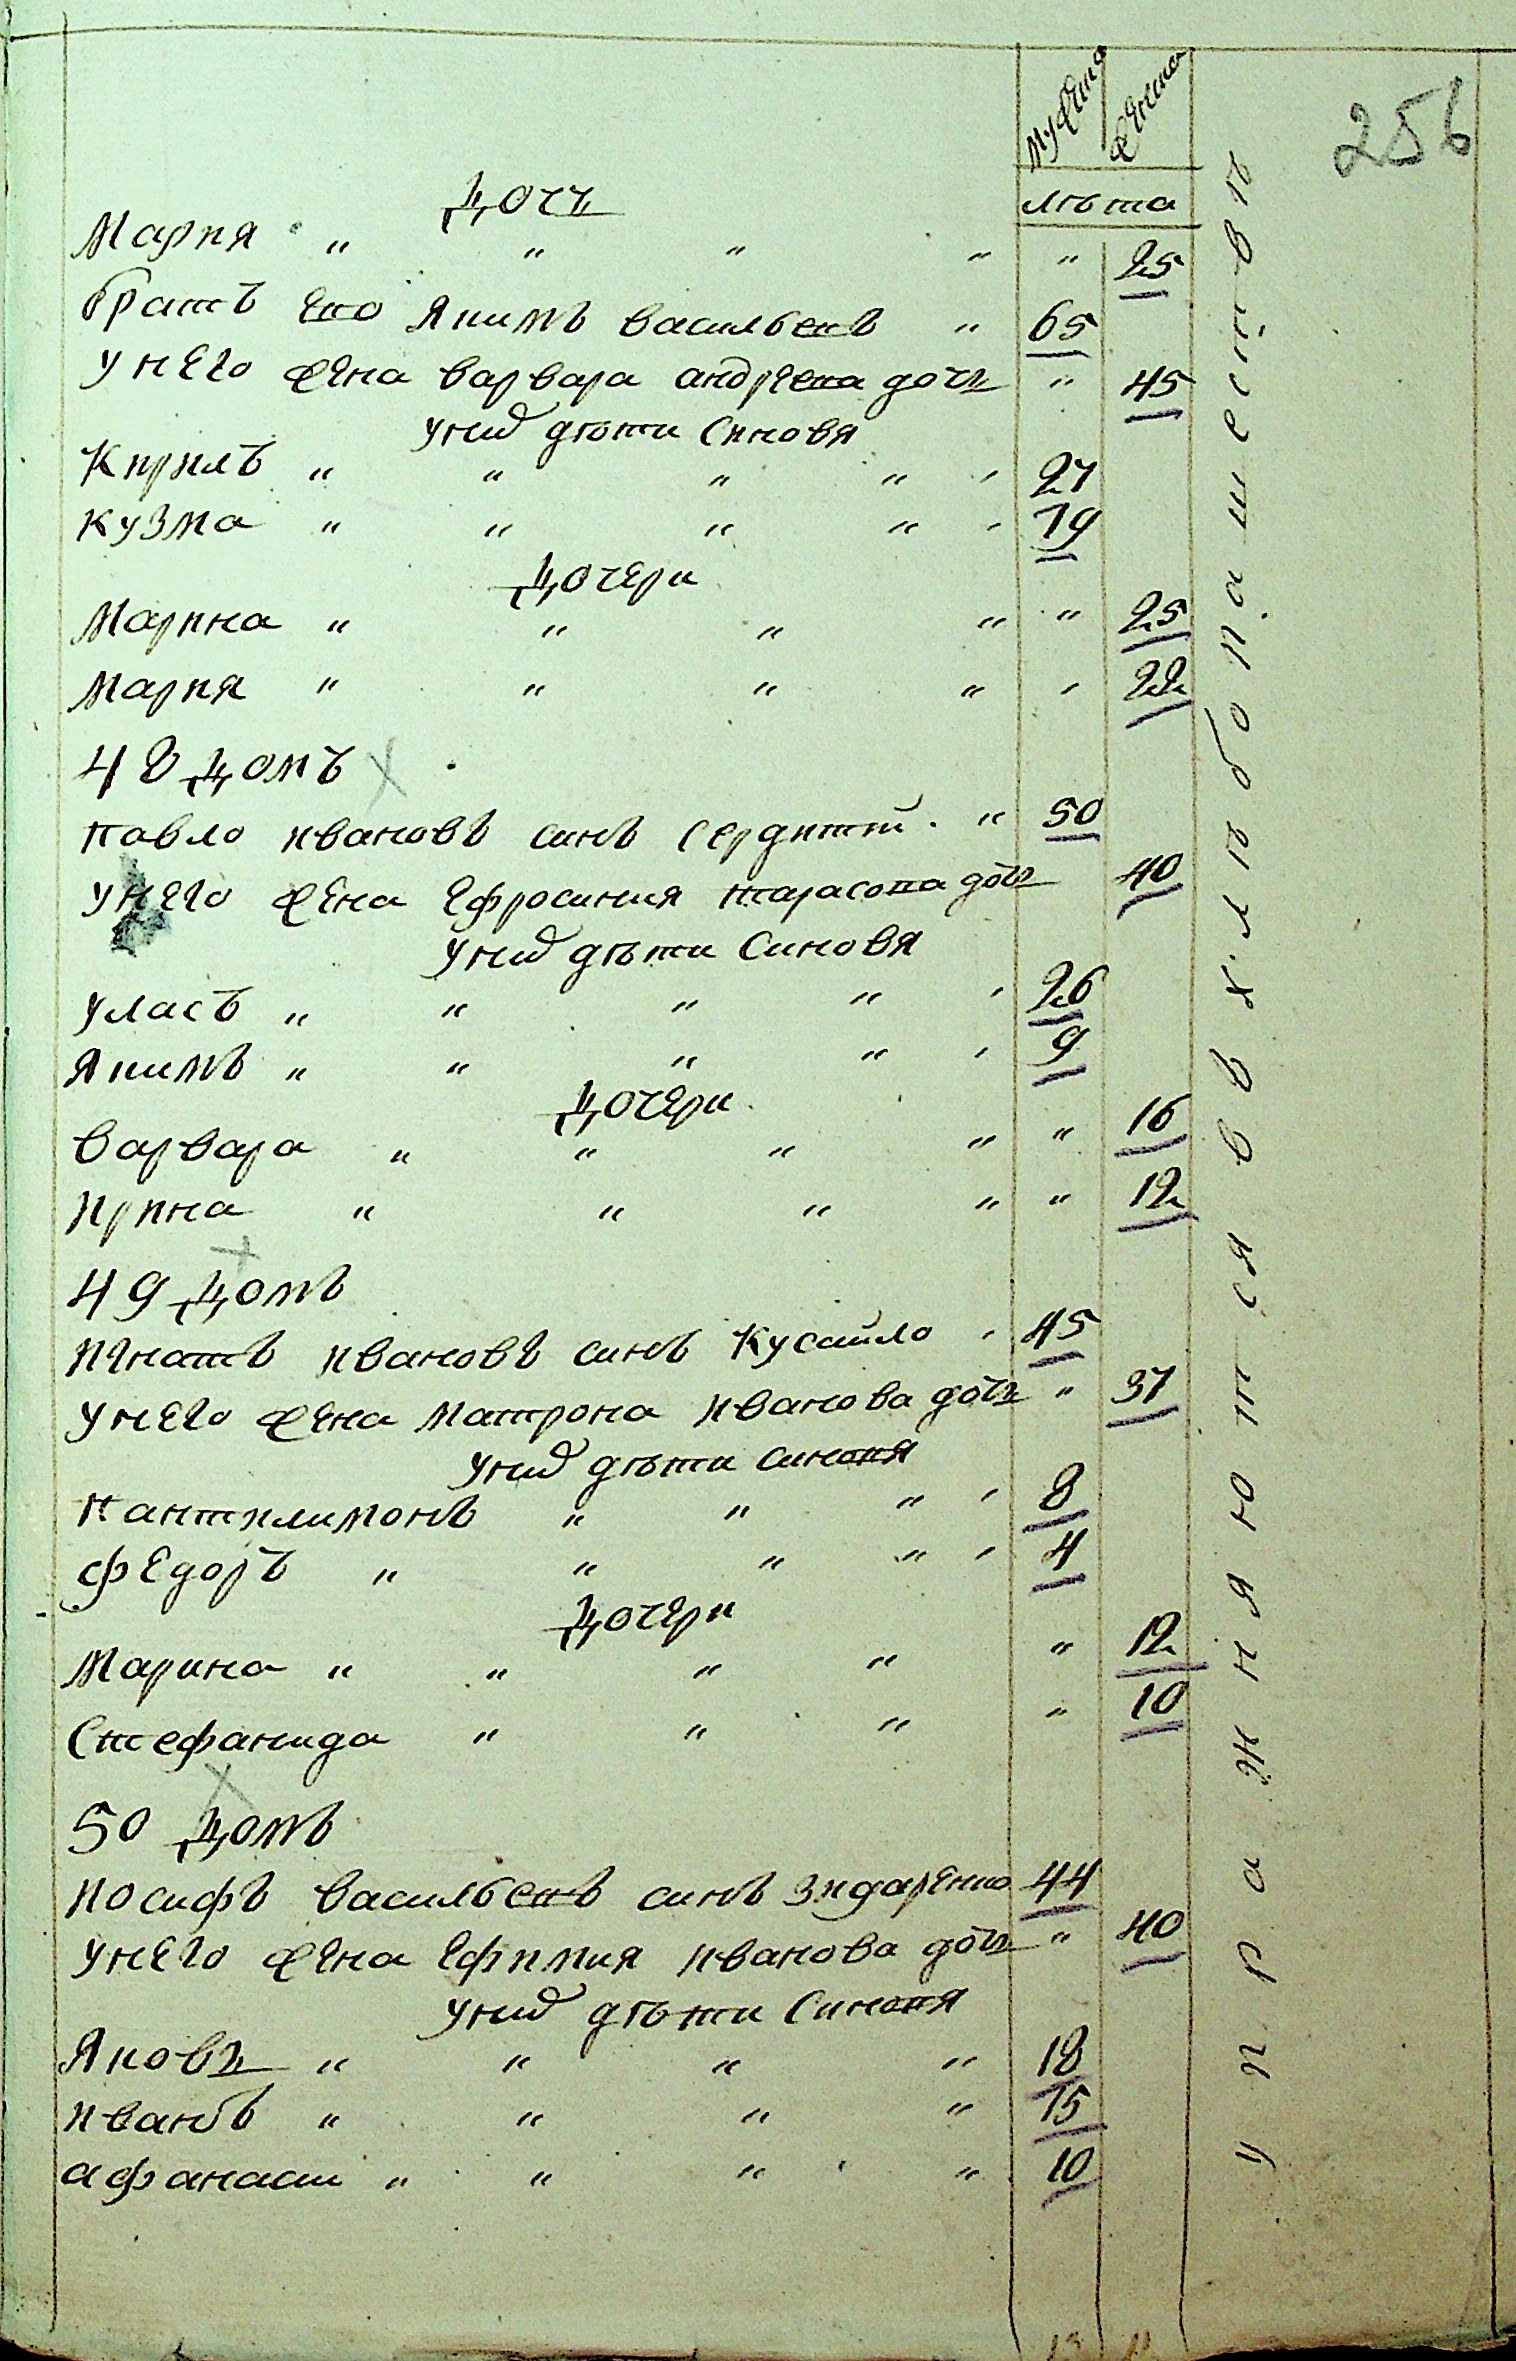 256
мужска женска
лѣта
Дочь
Мария " " " " " 25
братъ его Якимъ васильевъ " 65
у него жена варвара андреева дочь " 45
у них дѣти Синовя
Кирилъ " " " " 27
кузма " " " " 19
Дочери
Марина " " " " " 25
Мария " " " " " 22
48 Домъ
павло ивановъ синъ Сердитий " 50
у него жена Ефросиния тарасова дочь 40
у них дѣти Синовя
уласъ " " " " 26
Якимъ " " " " 9
Дочери
варвара " " " " " 16
ирина " " " " " 12
49 Домъ
игнатъ ивановъ синъ Кусайло 45
у него жена матрона иванова дочь " 37
у них дѣти синовя
пантилимонъ " " " 8
федоръ " " " " 4
Дочери
Марина " " " " " 12
Стефанида " " " " 10
50 Домъ
иосифъ васильевъ синъ зидаренко 44
у него жена Ефимия иванова дочь " 40
у них дѣти Синовя
Яковъ " " " " 18
иванъ " " " " 15
афанаси " " " " 10
упражняются в хлѣбопашествѣ